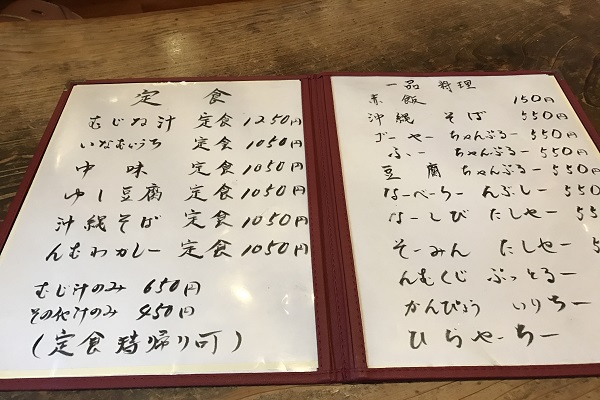 定食
むじ汁 定食 1250円
いなむどぅち 定食 1050円
中味 定食 1050円
ゆし豆腐 定食 1050円
沖縄そば 定食 1050円
んむわカレー 定食 1050円
むじ汁のみ 650円
その他汁のみ 450円
(定食 持帰り可)
一品料理
赤飯 150円
沖縄そば 550円
ごーやー ちゃんぷるー 550円
ふー ちゃんぷるー 550円
豆腐 ちゃんぷるー 550円
なーべーらー んぶしー 550
なーしび たしやー 55
そーみん たしやー 5
んむくじ ぷっとぅるー
かんぴょう いりちー
ひらやーちー